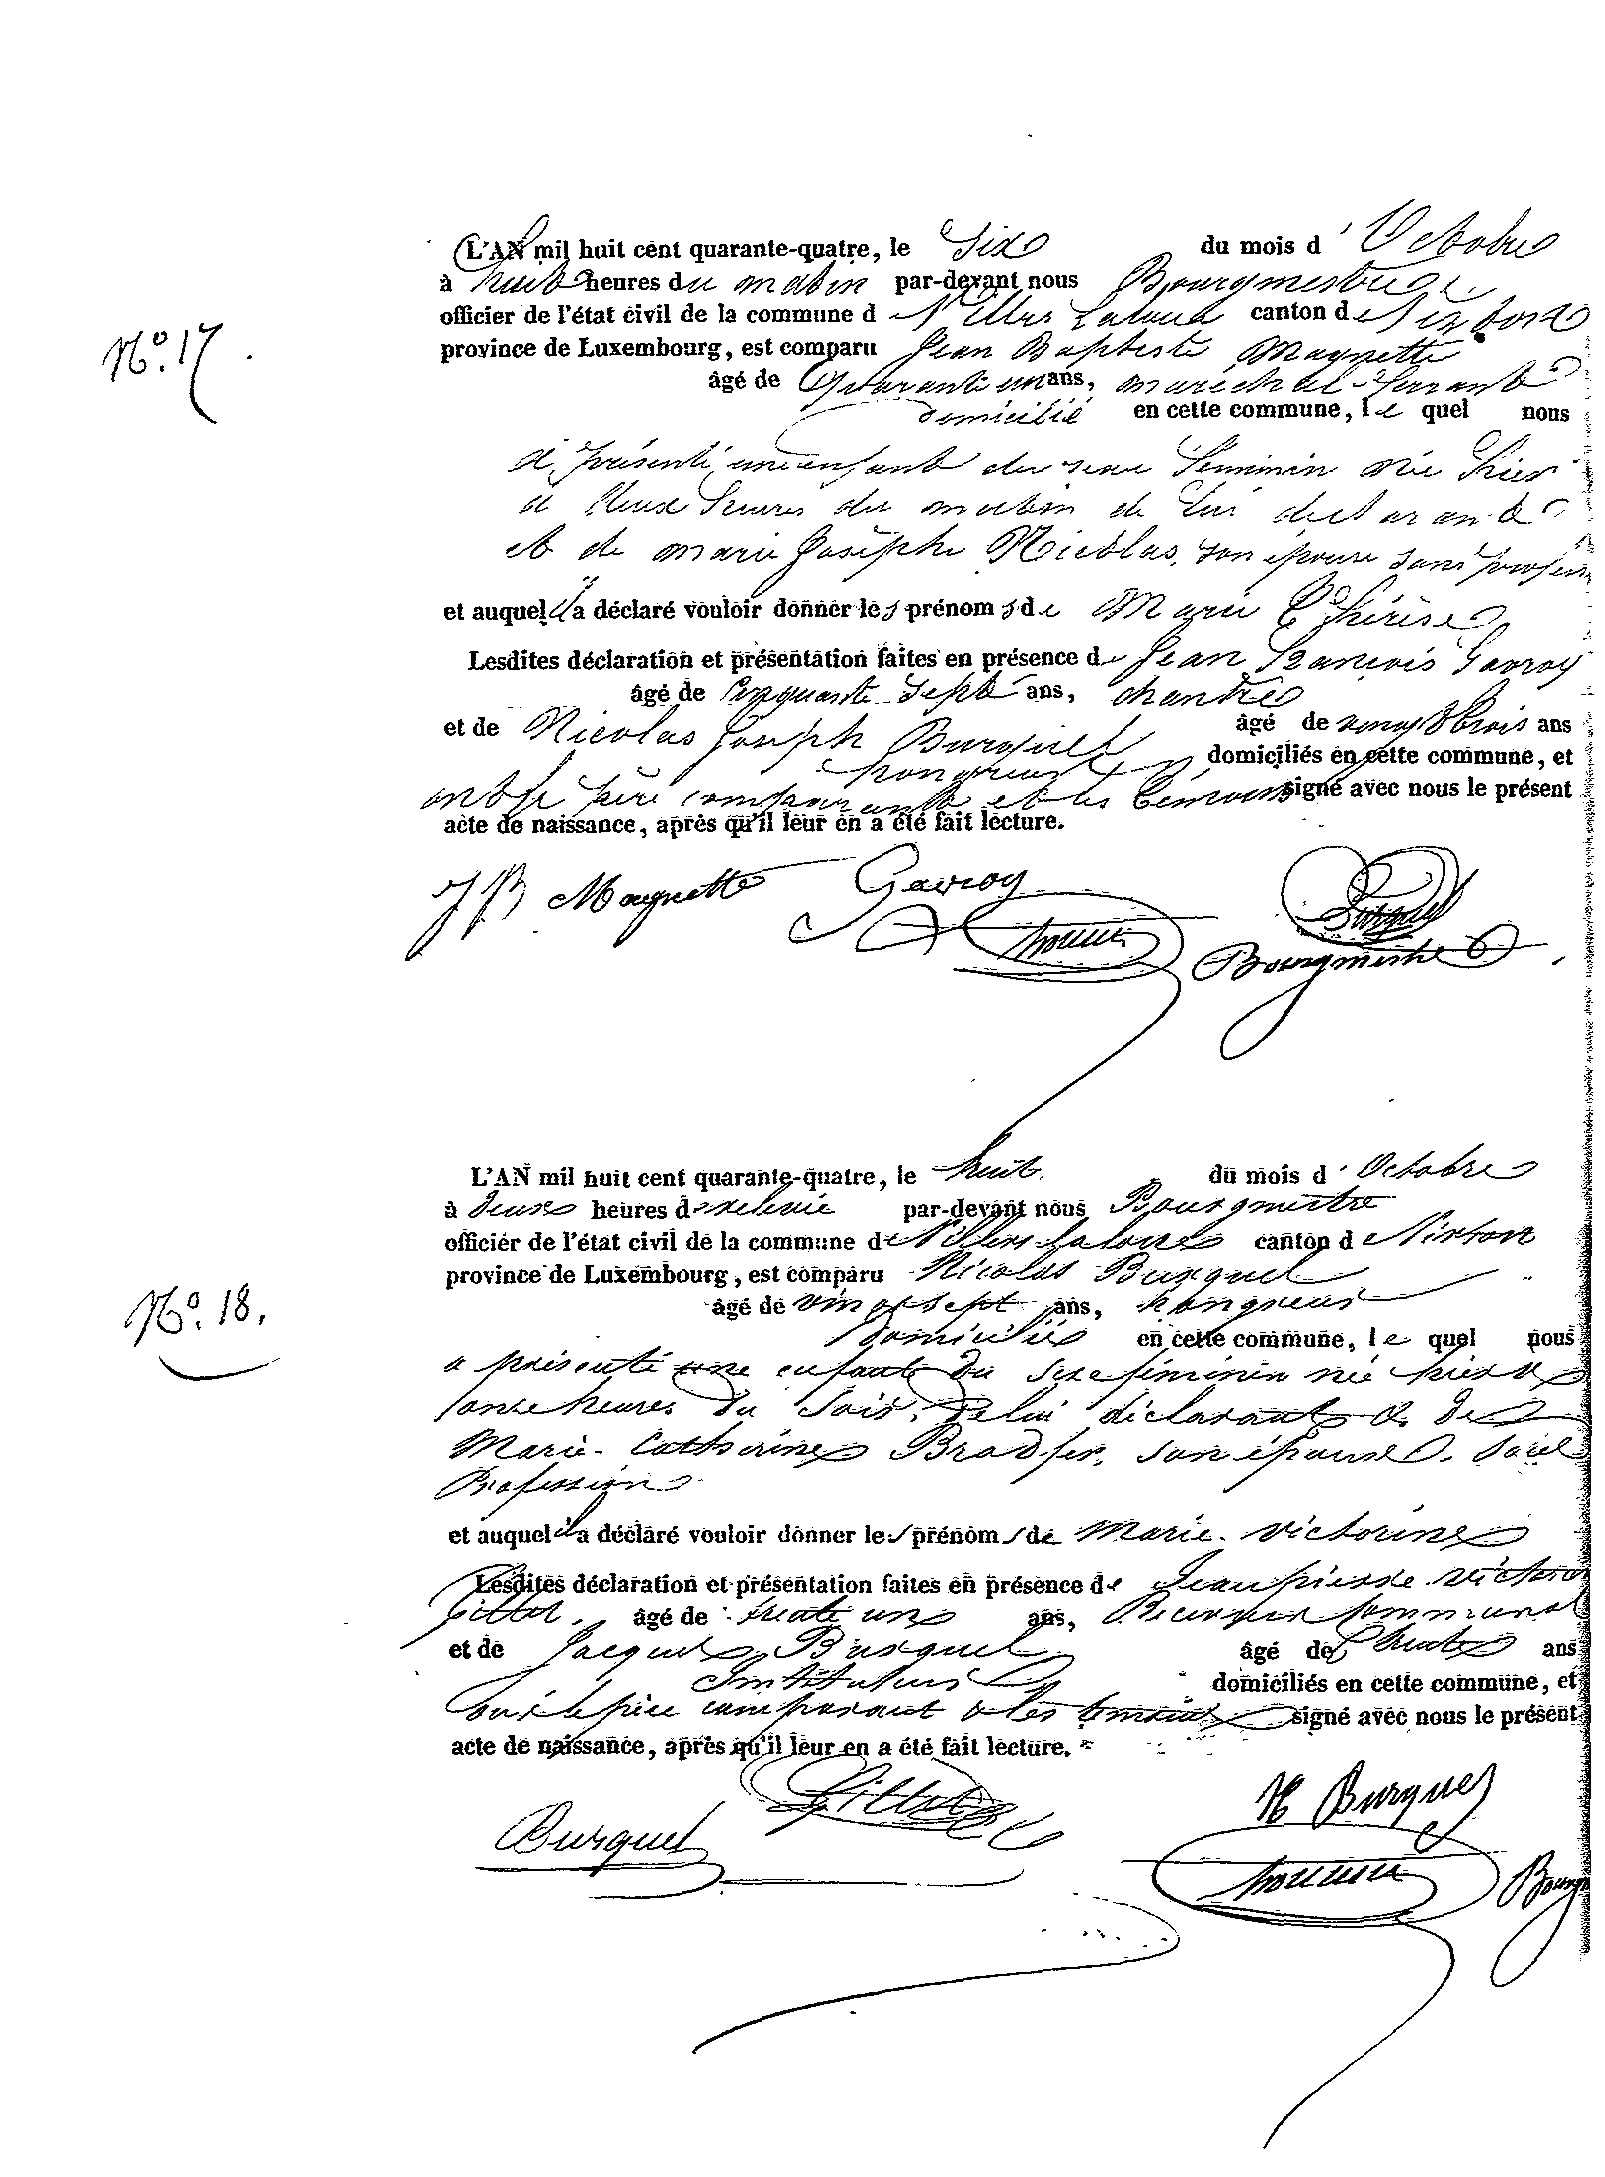 L'AN mil huit cent quarante-quatre, le Six du mois d'Octobre
à huit heures du matin par-devant nous Bourgmestre
officier de l'état civil de la commune de Villers Laloue canton de Virton
N.º 17.
province de Luxembourg, est comparu Jean Baptiste Magnette
âgé de Quarante un ans, maréchal-ferrant
domicilié en cette commune, le quel nous
a présenté un enfant du sexe féminin née hier
à deux heures du matin de lui déclarant
et de marie Josèphe Nicolas, son épouse sans profession
et auquel il a déclaré vouloir donner les prénoms de Marie Thérèse
Lesdites déclaration et présentation faites en présence de Jean François Gavroy
âgé de cinquante sept ans, chantre
et de Nicolas Joseph Burquel âgé de vingt trois ans
hongreur domiciliés en cette commune, et
ont le père comparant et les témoins signé avec nous le présent
acte de naissance, après qu'il leur en a été fait lecture.
J B Magnette Gavroy Burquel
Bourgmestre
L'AN mil huit cent quarante-quatre, le huit du mois d'Octobre
à deux heures de relevée par-devant nous Bourgmestre
officier de l'état civil de la commune de Villers-laloue canton de Virton
province de Luxembourg, est comparu Nicolas Burquel
N.º 18.
âgé de vingt sept ans, hongreur
domicilié en cette commune, le quel nous
a présenté une enfant du sexe féminin née hier à
onze heures du soir, de lui déclarant & de
Marie-Catherine Bradfer, son épouse, sans
Profession
et auquel il a déclaré vouloir donner les prénoms de Marie-Victorine
Lesdites déclaration et présentation faites en présence de Jean pierre victor
Gillet, âgé de trente un ans, Receveur communal
et de Jacques Burquel âgé de trente ans
Instituteur domiciliés en cette commune, et
ont le père comparant & les témoins signé avec nous le présent
acte de naissance, après qu'il leur en a été fait lecture.
Burquel Gillet N Burquel